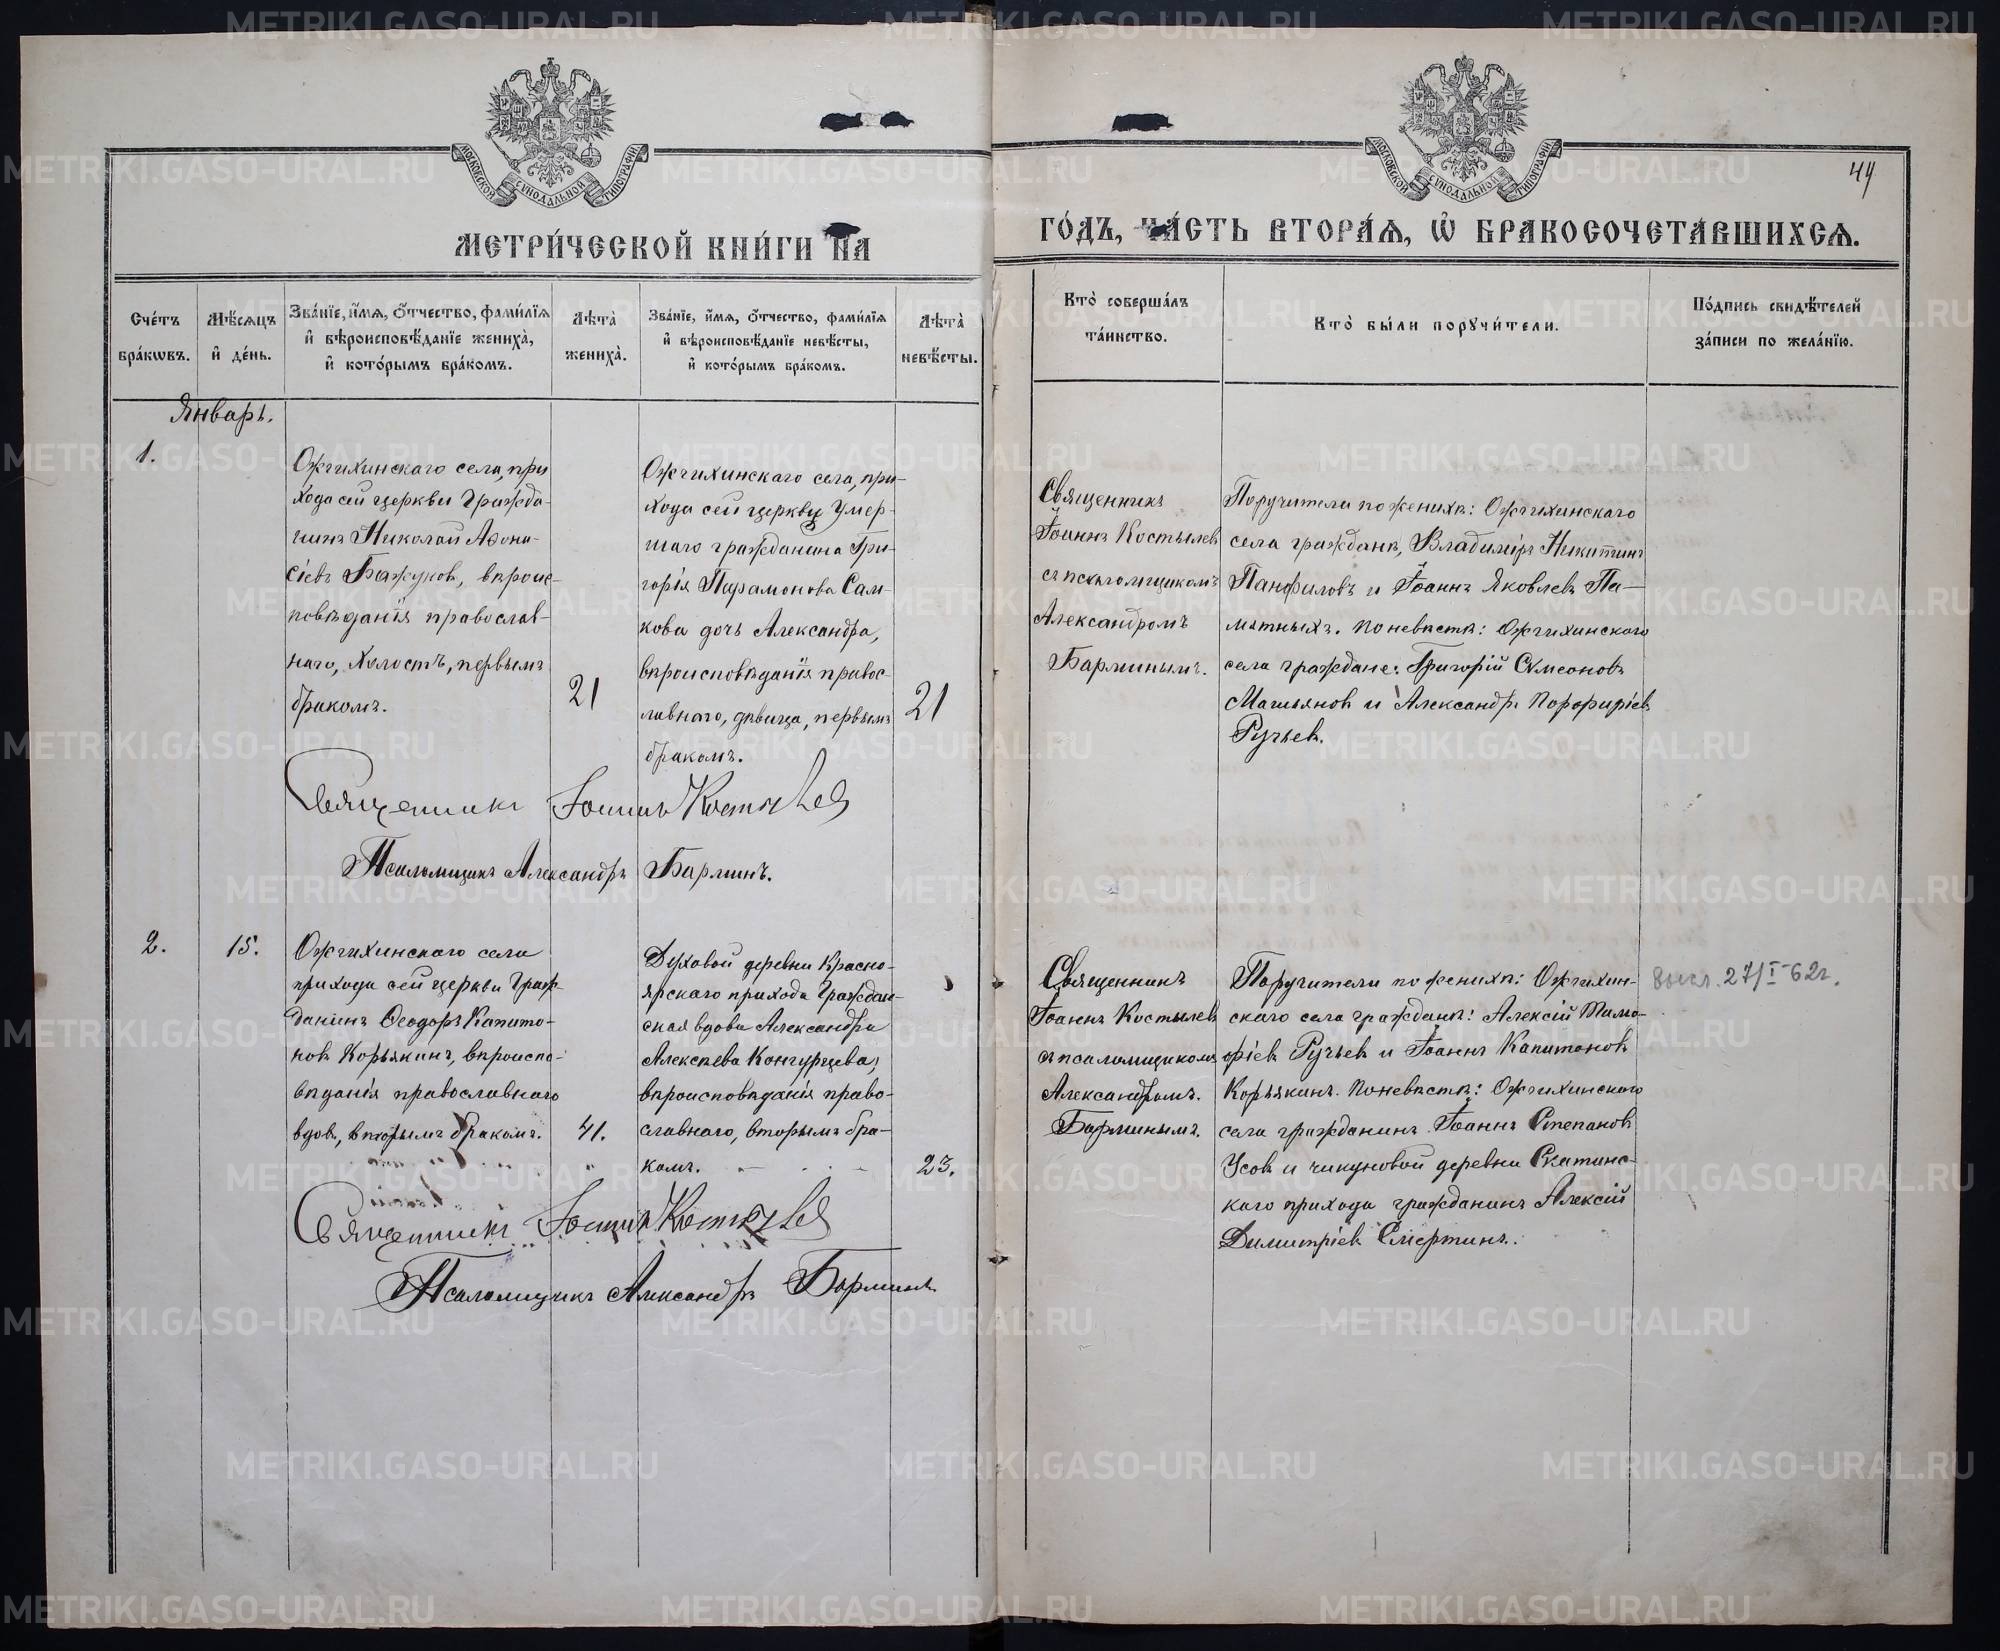 МЕТРИ́ЧЕСКОЙ КНИ́ГИ НА
ГО́ДЪ, ЧА́СТЬ ВТОРА́Ѧ, Ѽ БРАКОСОЧЕТА́ВШИХСѦ.
МОСКОВСКОЙ СѴНОДАЛЬНОЙ ТИПОГРАФІИ
МОСКОВСКОЙ СѴНОДАЛЬНОЙ ТИПОГРАФІИ
44
Сче́тъ
бра́кѡвъ.
Мѣ́сѧцъ
и҆ де́нь.
Зва́нїе, и҆́мѧ, ѻ҆́тчество, фами́лїѧ
и҆ вѣроисповѣ́данїе жениха̀,
и҆ кото́рымъ бра́комъ.
Лѣ́та̀
жениха̀.
Зва́нїе, и҆́мѧ, ѻ҆́тчество, фами́лїѧ
и҆ вѣроисповѣ́данїе невѣ́сты,
и҆ кото́рымъ бра́комъ.
Лѣ́та̀
невѣ́сты.
Кто̀ соверша́лъ
та́инство.
Кто̀ бы́ли порꙋчи́тели.
По́дпись свидѣ́телей
за́писи по жела́нїю.
Январь.
1.
Ожгихинскаго села, при
хода сей церкви Гражда-
нинъ Николай Аѳона-
сіевъ Бажуков, вѣроис-
повѣданія православ-
наго, холостъ, первымъ
бракомъ.
21
Ожгихинскаго села, при-
хода сей церкви умер-
шаго гражданина Гри-
горія Парамонова Сам-
кова дочь Александра,
вѣроисповѣданія правос-
лавнаго, дѣвица, первымъ
бракомъ.
21
Священникъ
Іоаннъ Костылевъ
съ псаломщикомъ
Александромъ
Барминымъ.
Поручители по женихѣ: Ожгихинскаго
села граждане, Владиміръ Никитинъ
Панфиловъ и Іоаннъ Яковлевъ Па-
мятныхъ. По невѣстѣ: Ожгихинскаго
села граждане: Григорій Сѵмеоновъ
Машьянов и Александръ Порфиріевъ
Ручьев.
Священникъ Іоаннъ Костылев
Псаломщикъ Александръ Барминъ.
2.
15.
Ожгихинскаго села
прихода сей церкви Граж-
данинъ Ѳеодоръ Капито-
новъ Корьякинъ, вѣроиспо-
вѣданія православнаго
вдов, вторымъ бракомъ.
41.
Духовой деревни Красно-
ярскаго прихода Граждан-
ская вдова Александра
Алексѣева Конгурцева,
вѣроисповѣданія право-
славнаго, вторымъ бра-
комъ.
23.
Священникъ
Іоаннъ Костылев
съ псаломщикомъ
Александромъ.
Барминымъ.
Поручители по женихѣ: Ожгихин-
скаго села граждане: Алексій Тимо-
фіевъ Ручьев и Іоаннъ Капитоновъ
Корьякинъ. По невѣстѣ: Ожгихинскаго
села гражданинъ Іоаннъ Степанов
Усов и чикуновой деревни Скатинс-
каго прихода гражданинъ Алексій
Димитріевъ Смертинъ.
высл. 27/I-62г.
Священникъ Іоаннъ Костылев
Псаломщикъ Александръ Барминъ
METRIKI.GASO-URAL.RU